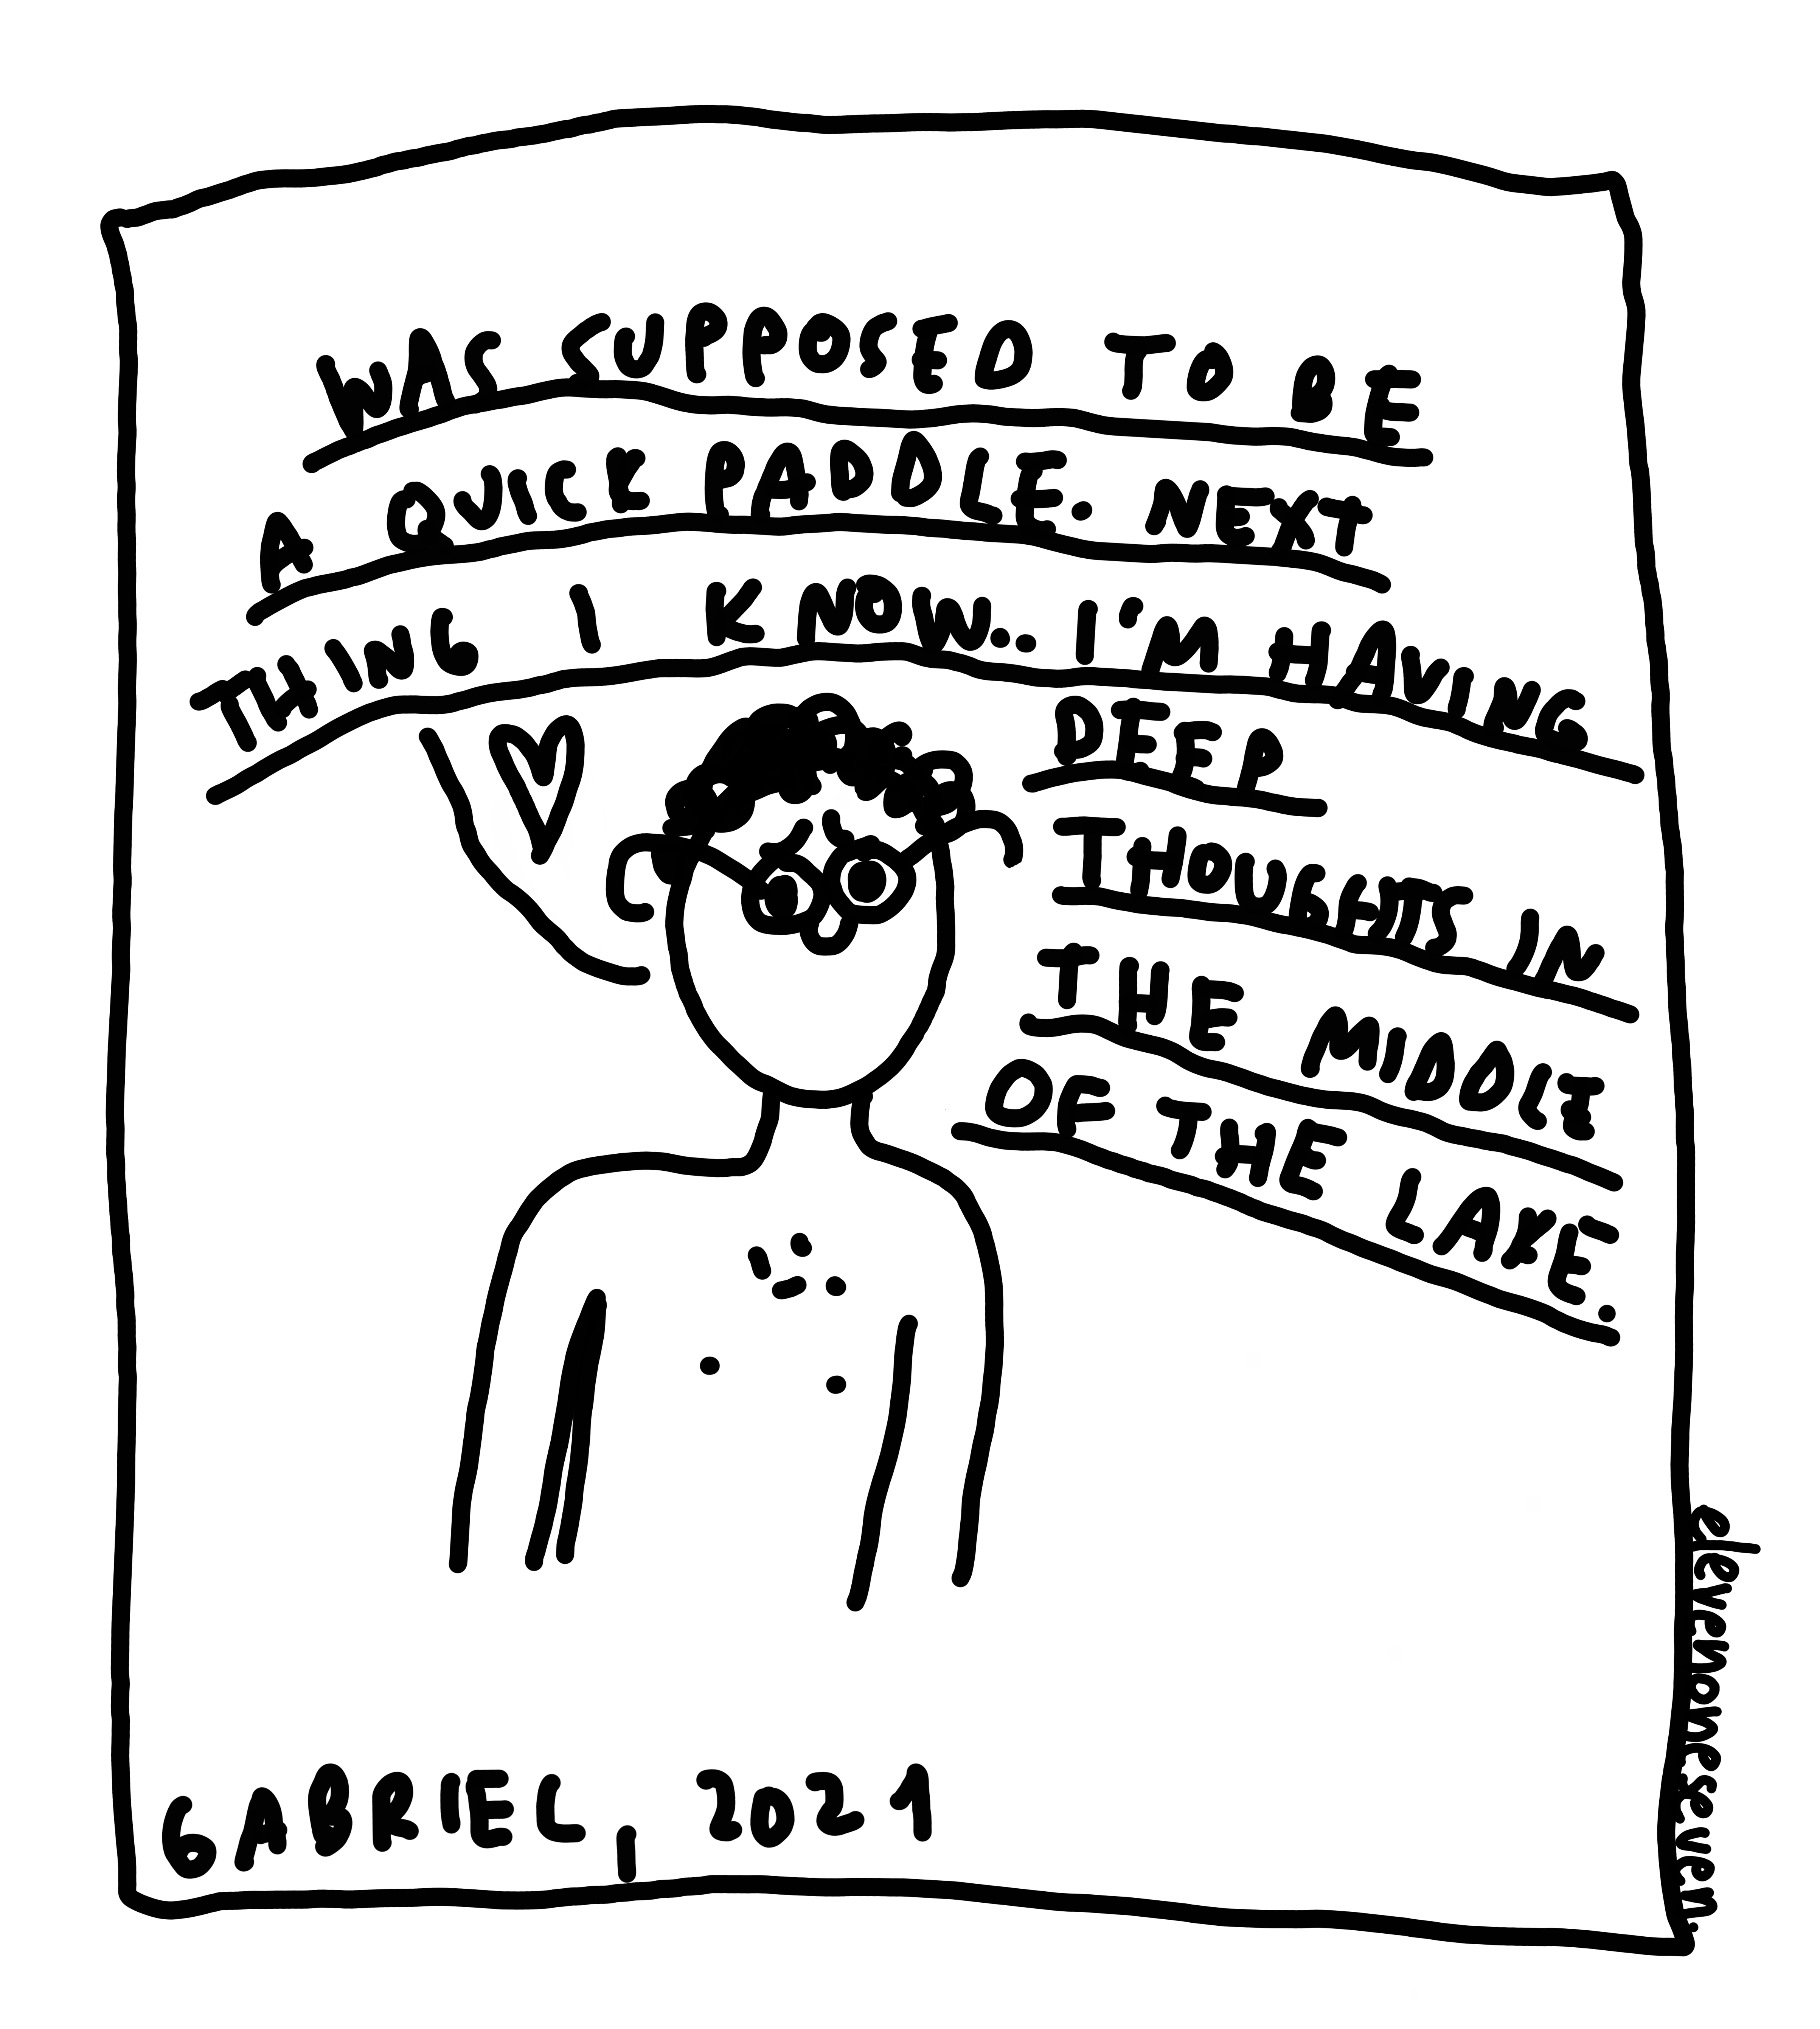 WAS SUPPOSED TO BE
A QUICK PADDLE. NEXT
THING I KNOW.. I'M HAVING
DEEP
THOUGHTS IN
THE MIDDLE
OF THE LAKE.
GABRIEL, 2021
elevenohereleven.